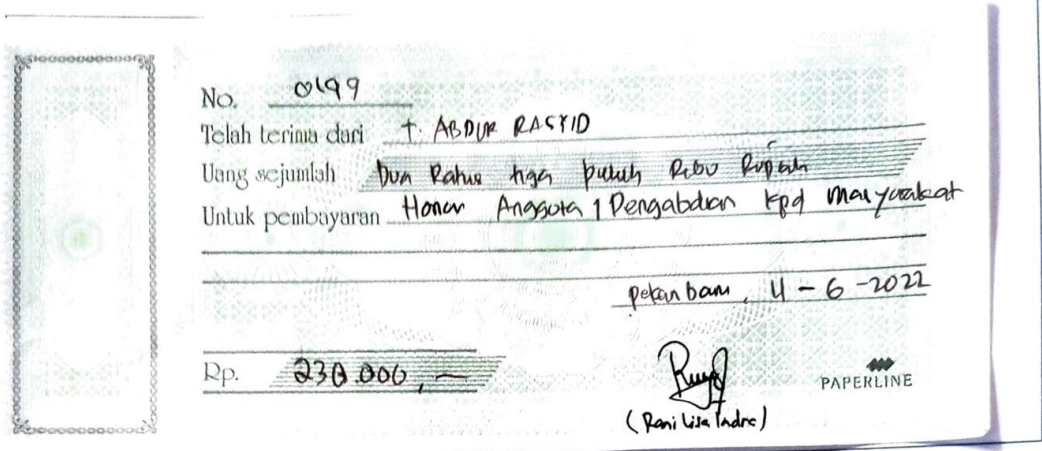 No. 0199
Telah terima dari T. ABDUR RASYID
Uang sejumlah Dua Ratus tiga puluh Ribu Rupiah
Untuk pembayaran Honor Anggota 1 Pengabdian kpd Masyarakat
Pekanbaru, 4 - 6 - 2022
Rp. 230.000,-
PAPERLINE
(Rani Lisa Indra)